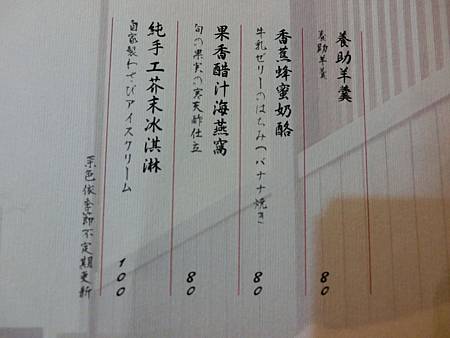 養助羊羹
養助羊羹
80
香蕉蜂蜜奶酪
牛乳ゼリーのはちみつバナナ焼き
80
果香醋汁海燕窩
旬の果実の寒天酢仕立
80
純手工芥末冰淇淋
自家製わさびアイスクリーム
100
菜色依季節不定期更新